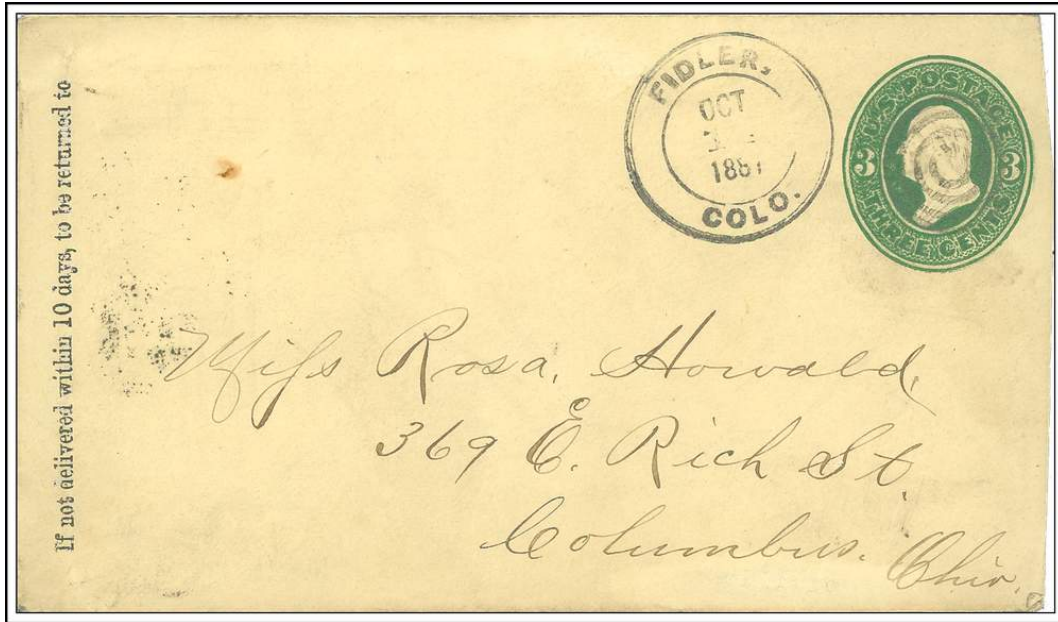 If not delivered within 10 days, to be returned to
FIDLER,
OCT
1881
COLO.
U.S. POSTAGE
3 3
THREE CENTS
Miss Rosa. Howald,
369 E. Rich St.
Columbus. Ohio.